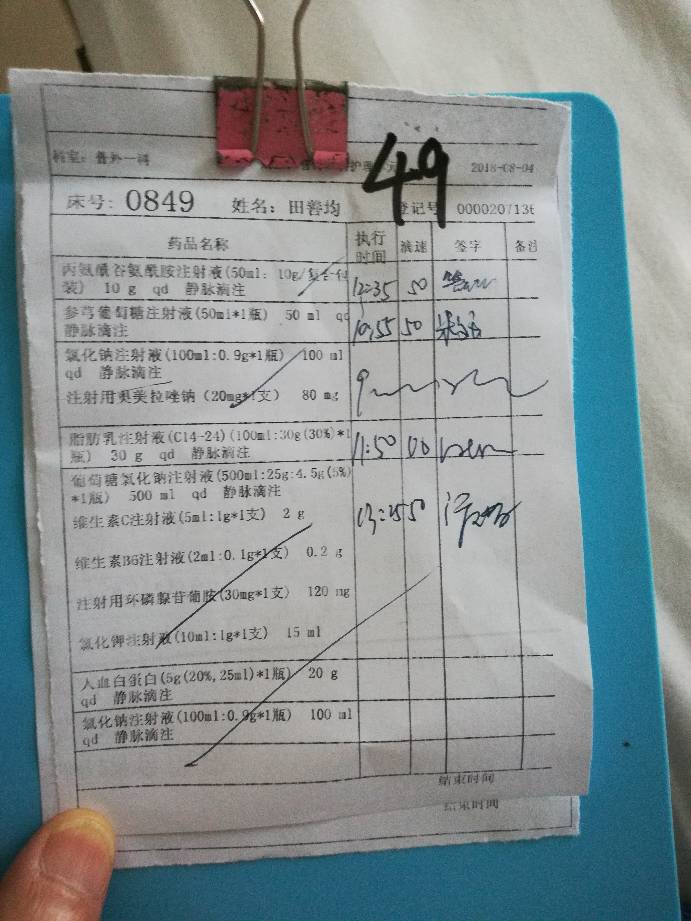 科室: 普外一科 2018-08-04
49
床号: 0849 姓名: 田善均 登记号 000020713
药品名称 执行时间 滴速 签字 备注
丙氨酰谷氨酰胺注射液(50ml: 10g/复合包
装) 10 g qd 静脉滴注 12:35 50
参芎葡萄糖注射液(50ml*1瓶) 50 ml qd
静脉滴注 10:55 50
氯化钠注射液(100ml:0.9g*1瓶) 100 ml
qd 静脉滴注
注射用奥美拉唑钠 (20mg*1支) 80 mg
脂肪乳注射液(C14-24)(100ml:30g(30%)*1
瓶) 30 g qd 静脉滴注 11:50
葡萄糖氯化钠注射液(500ml:25g:4.5g(5%)
*1瓶) 500 ml qd 静脉滴注
维生素C注射液(5ml:1g*1支) 2 g 13:25 50
维生素B6注射液(2ml:0.1g*1支) 0.2 g
注射用环磷腺苷葡胺(30mg*1支) 120 mg
氯化钾注射液(10ml:1g*1支) 15 ml
人血白蛋白(5g(20%,25ml)*1瓶) 20 g
qd 静脉滴注
氯化钠注射液(100ml:0.9g*1瓶) 100 ml
qd 静脉滴注
结束时间
结束时间